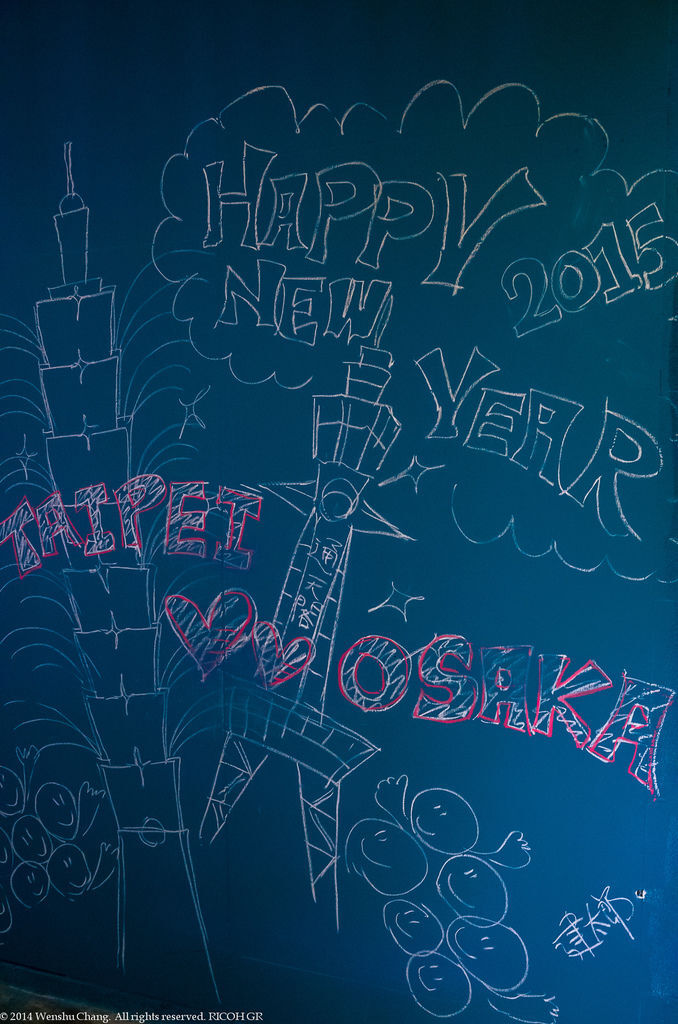 HAPPY
NEW
2015
YEAR
TAIPEI
OSAKA
通天閣
建太郎
© 2014 Wenshu Chang. All rights reserved. RICOH GR